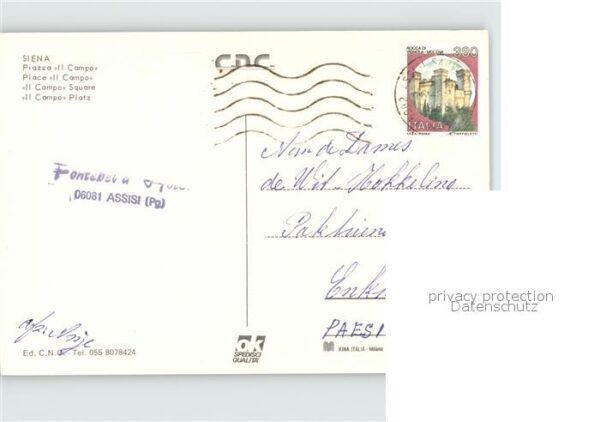 SIENA
Piazza «Il Campo»
Place «Il Campo»
«Il Campo» Square
«Il Campo» Platz
ROCCA DI
VIGNOLA - MODENA
380
ITALIA
Aan de Dames
de Wit - Hokkeling
Enk
PAESI
06081 ASSISI (Pg)
privacy protection
Datenschutz
OK
SPEDISCI
QUALITÀ
KINA ITALIA - Milano
Ed. C.N.G. Tel. 055 8078424